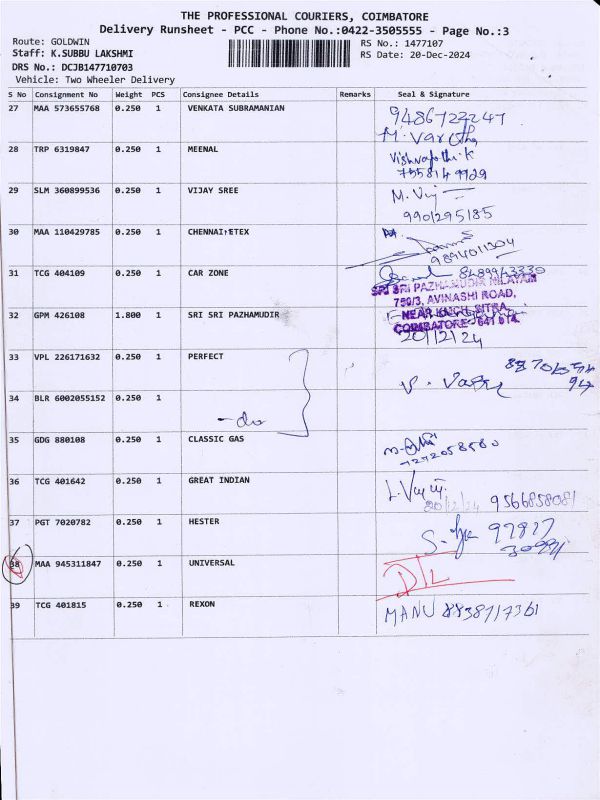 THE PROFESSIONAL COURIERS, COIMBATORE
Delivery Runsheet - PCC - Phone No.:0422-3505555 - Page No.:3
Route: GOLDWIN
RS No.: 1477107
Staff: K.SUBBU LAKSHMI
RS Date: 20-Dec-2024
DRS No.: DCJB147710703
Vehicle: Two Wheeler Delivery
S No Consignment No Weight PCS Consignee Details Remarks Seal & Signature
27 MAA 573655768 0.250 1 VENKATA SUBRAMANIAN 9486722247
28 TRP 6319847 0.250 1 MEENAL
29 SLM 360899536 0.250 1 VIJAY SREE
9901295185
30 MAA 110429785 0.250 1 CHENNAI TEX
9894011304
31 TCG 404109 0.250 1 CAR ZONE
SRI SRI PAZHAMUDIR NILAYAM
750/3, AVINASHI ROAD,
32 GPM 426108 1.800 1 SRI SRI PAZHAMUDIR
COIMBATORE - 641 014.
20/12/24
33 VPL 226171632 0.250 1 PERFECT
34 BLR 6002055152 0.250 1 -do
35 GDG 880108 0.250 1 CLASSIC GAS
36 TCG 401642 0.250 1 GREAT INDIAN
20/12/24 9566858081
37 PGT 7020782 0.250 1 HESTER
38 MAA 945311847 0.250 1 UNIVERSAL
39 TCG 401815 0.250 1 REXON MANU 8838717361